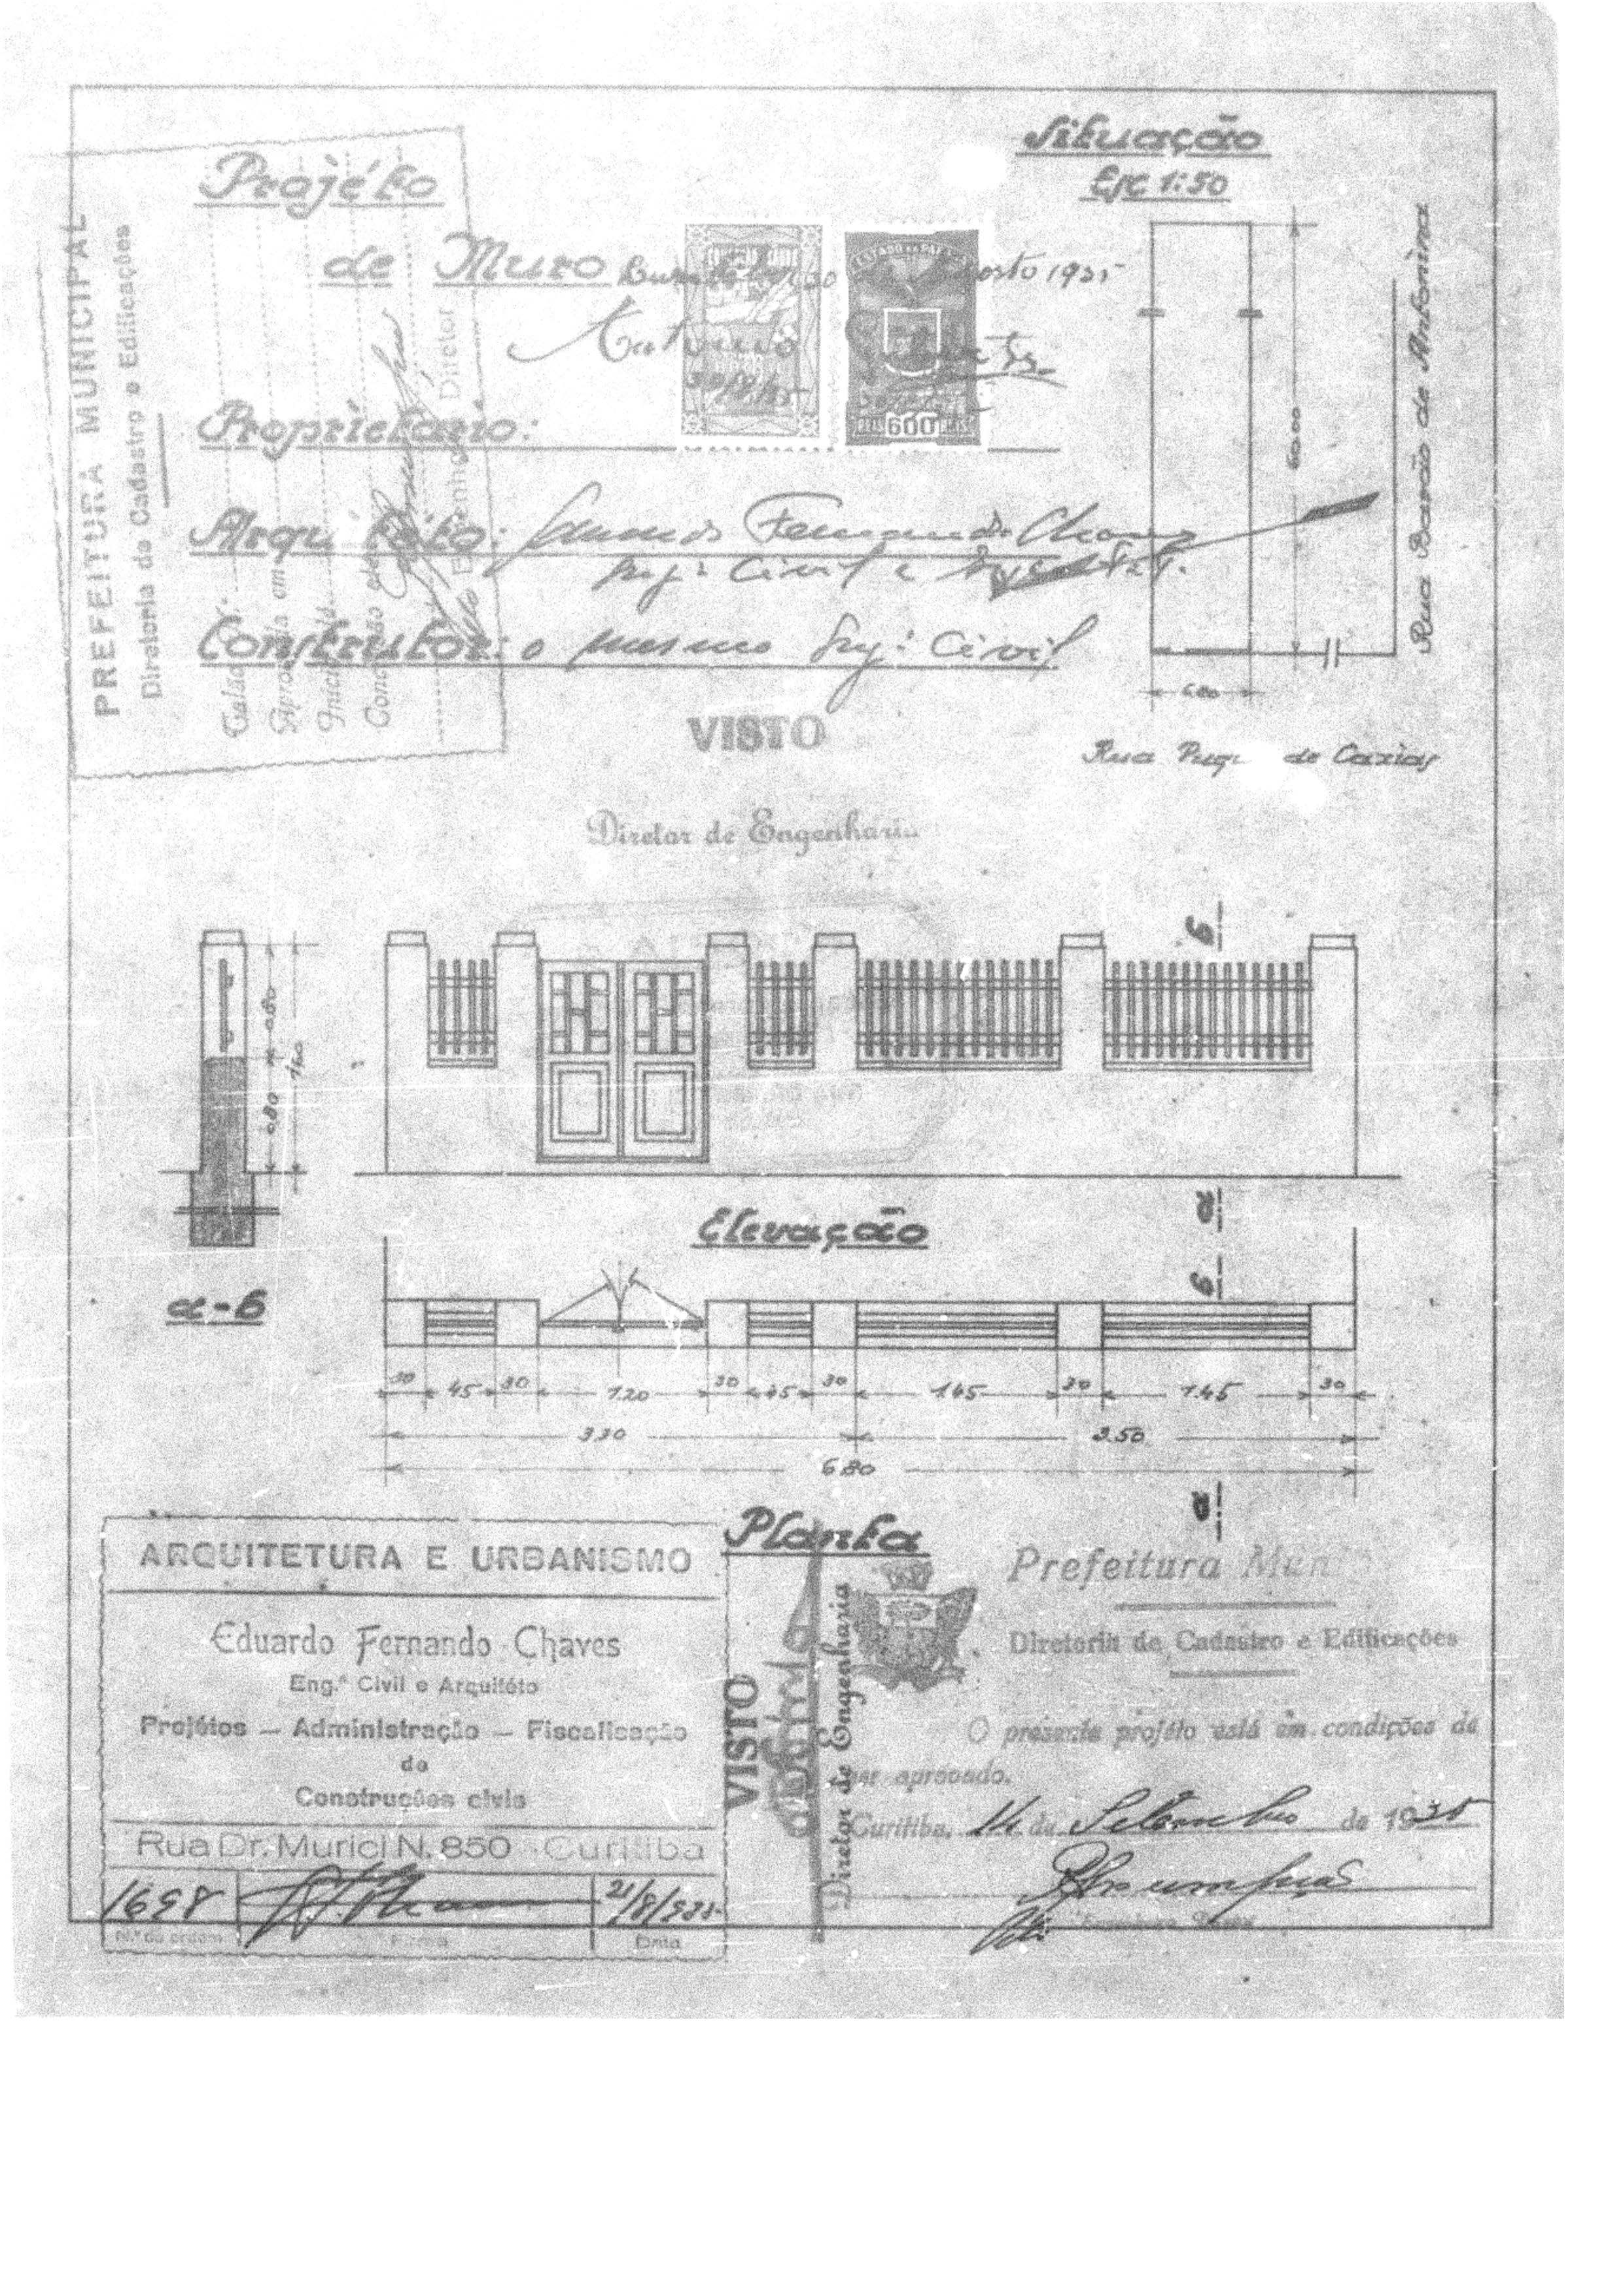 Situação
Esc 1:50
Projéto
de Muro
Agosto 1935
ESTADO DO PARANÁ
600
Proprietario:
Arquitéto: Fernando Chaves
Engº Civil e
Construtor: o mesmo Engº Civil
PREFEITURA MUNICIPAL
Diretoria de Cadastro e Edificações
Engenheiro Diretor
60.00
6.80
Rua Barão de Antonina
Rua Duque de Caxias
VISTO
Diretor de Engenharia
b
0.80
0.80
1.60
a
Elevação
b
a-b
30 45 30 1.20 30 45 30 1.45 30 1.45 30
3.30 3.50
6.80
a
Planta
ARQUITETURA E URBANISMO
Eduardo Fernando Chaves
Eng.º Civil e Arquitéto
Projétos — Administração — Fiscalisação
de
Construções civis
Rua Dr. Murici N. 850 Curitiba
1698
21/8/935
N.º de ordem
Firma
Data
VISTO
Diretor de Engenharia
Prefeitura Mun
Diretoria de Cadastro e Edificações
O presente projéto está em condições de
ser aprovado.
Curitiba, 14 de Setembro de 1935